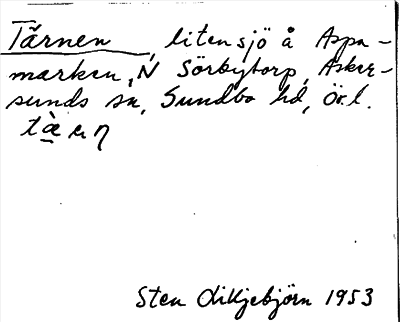 Tärnen, liten sjö å Aspa-
marken, N Sörbytorp, Asker-
sunds sn, Sundbo hd, Ör.l.
Sten Liljebjörn 1953